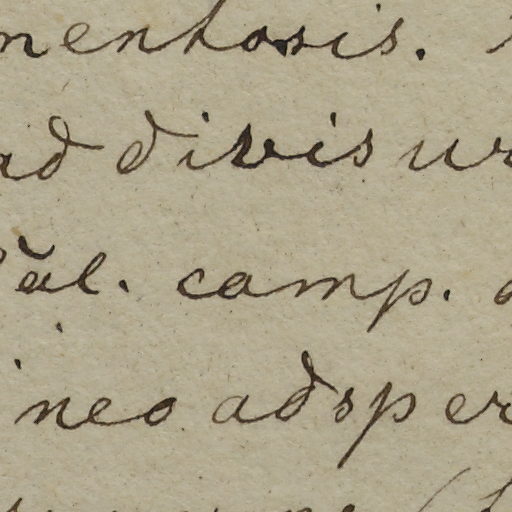 mentosis.
ad divisur
căl. camp.
ineo adsper